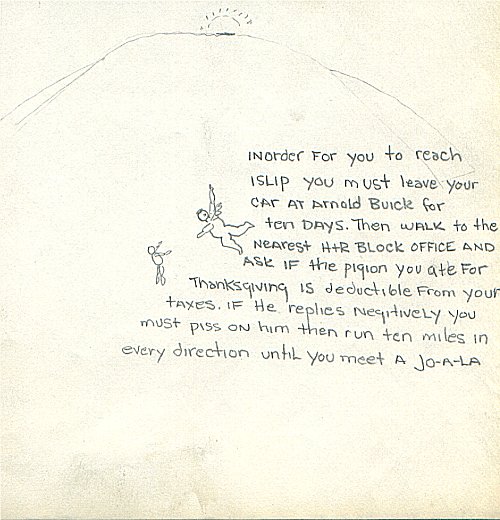 INorder For you to reach
ISLIP you must leave your
CAR AT Arnold Buick for
ten DAYS. Then WALK to the
Nearest H+R BLOCK OFFICE AND
ASK IF the piqion you ate For
Thanksgiving IS deductible From your
TAXES. IF He replies Negitively you
must piss ON him then run ten miles in
every direction until you meet A JO-A-LA